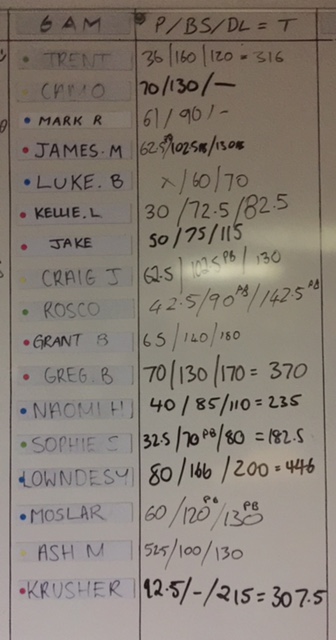 6 AM P/BS/DL = T
TRENT 36/160/120 = 316
CAMO 70/130/—
MARK R 61/90/-
JAMES.M 62.5/102.5PB/130PB
LUKE.B x/60/70
KELLIE.L 30/72.5/82.5
JAKE 50/75/115
CRAIG J 62.5/102.5PB/130
ROSCO 42.5/90PB/142.5PB
GRANT B 65/140/180
GREG.B 70/130/170 = 370
NAOMI H 40/85/110 = 235
SOPHIE S 32.5/70PB/80 = 182.5
LOWNDESY 80/166/200 = 446
MOSLAR 60/120PB/130PB
ASH M 52.5/100/130
KRUSHER 92.5/-/215 = 307.5